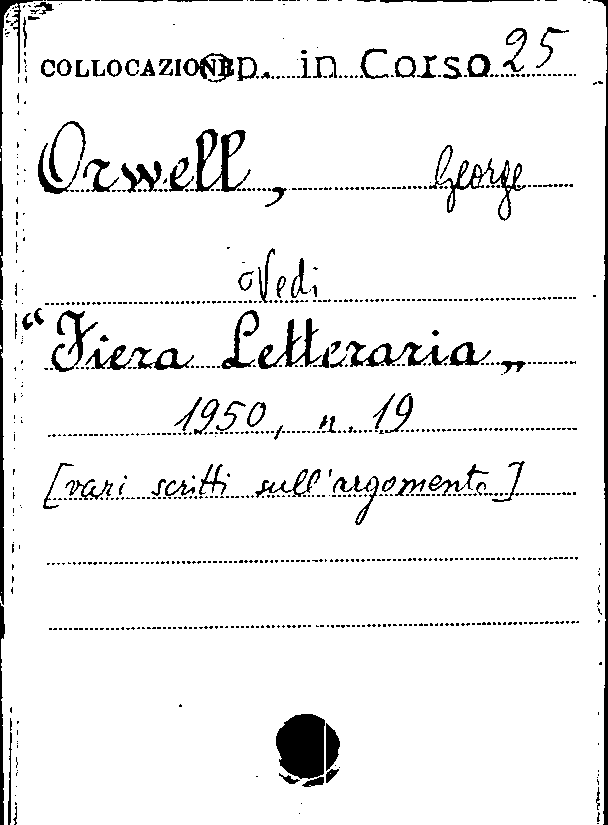 COLLOCAZIONE Op. in Corso 25
Orwell, George
Vedi
“Fiera Letteraria„
1950, n. 19
[vari scritti sull'argomento]